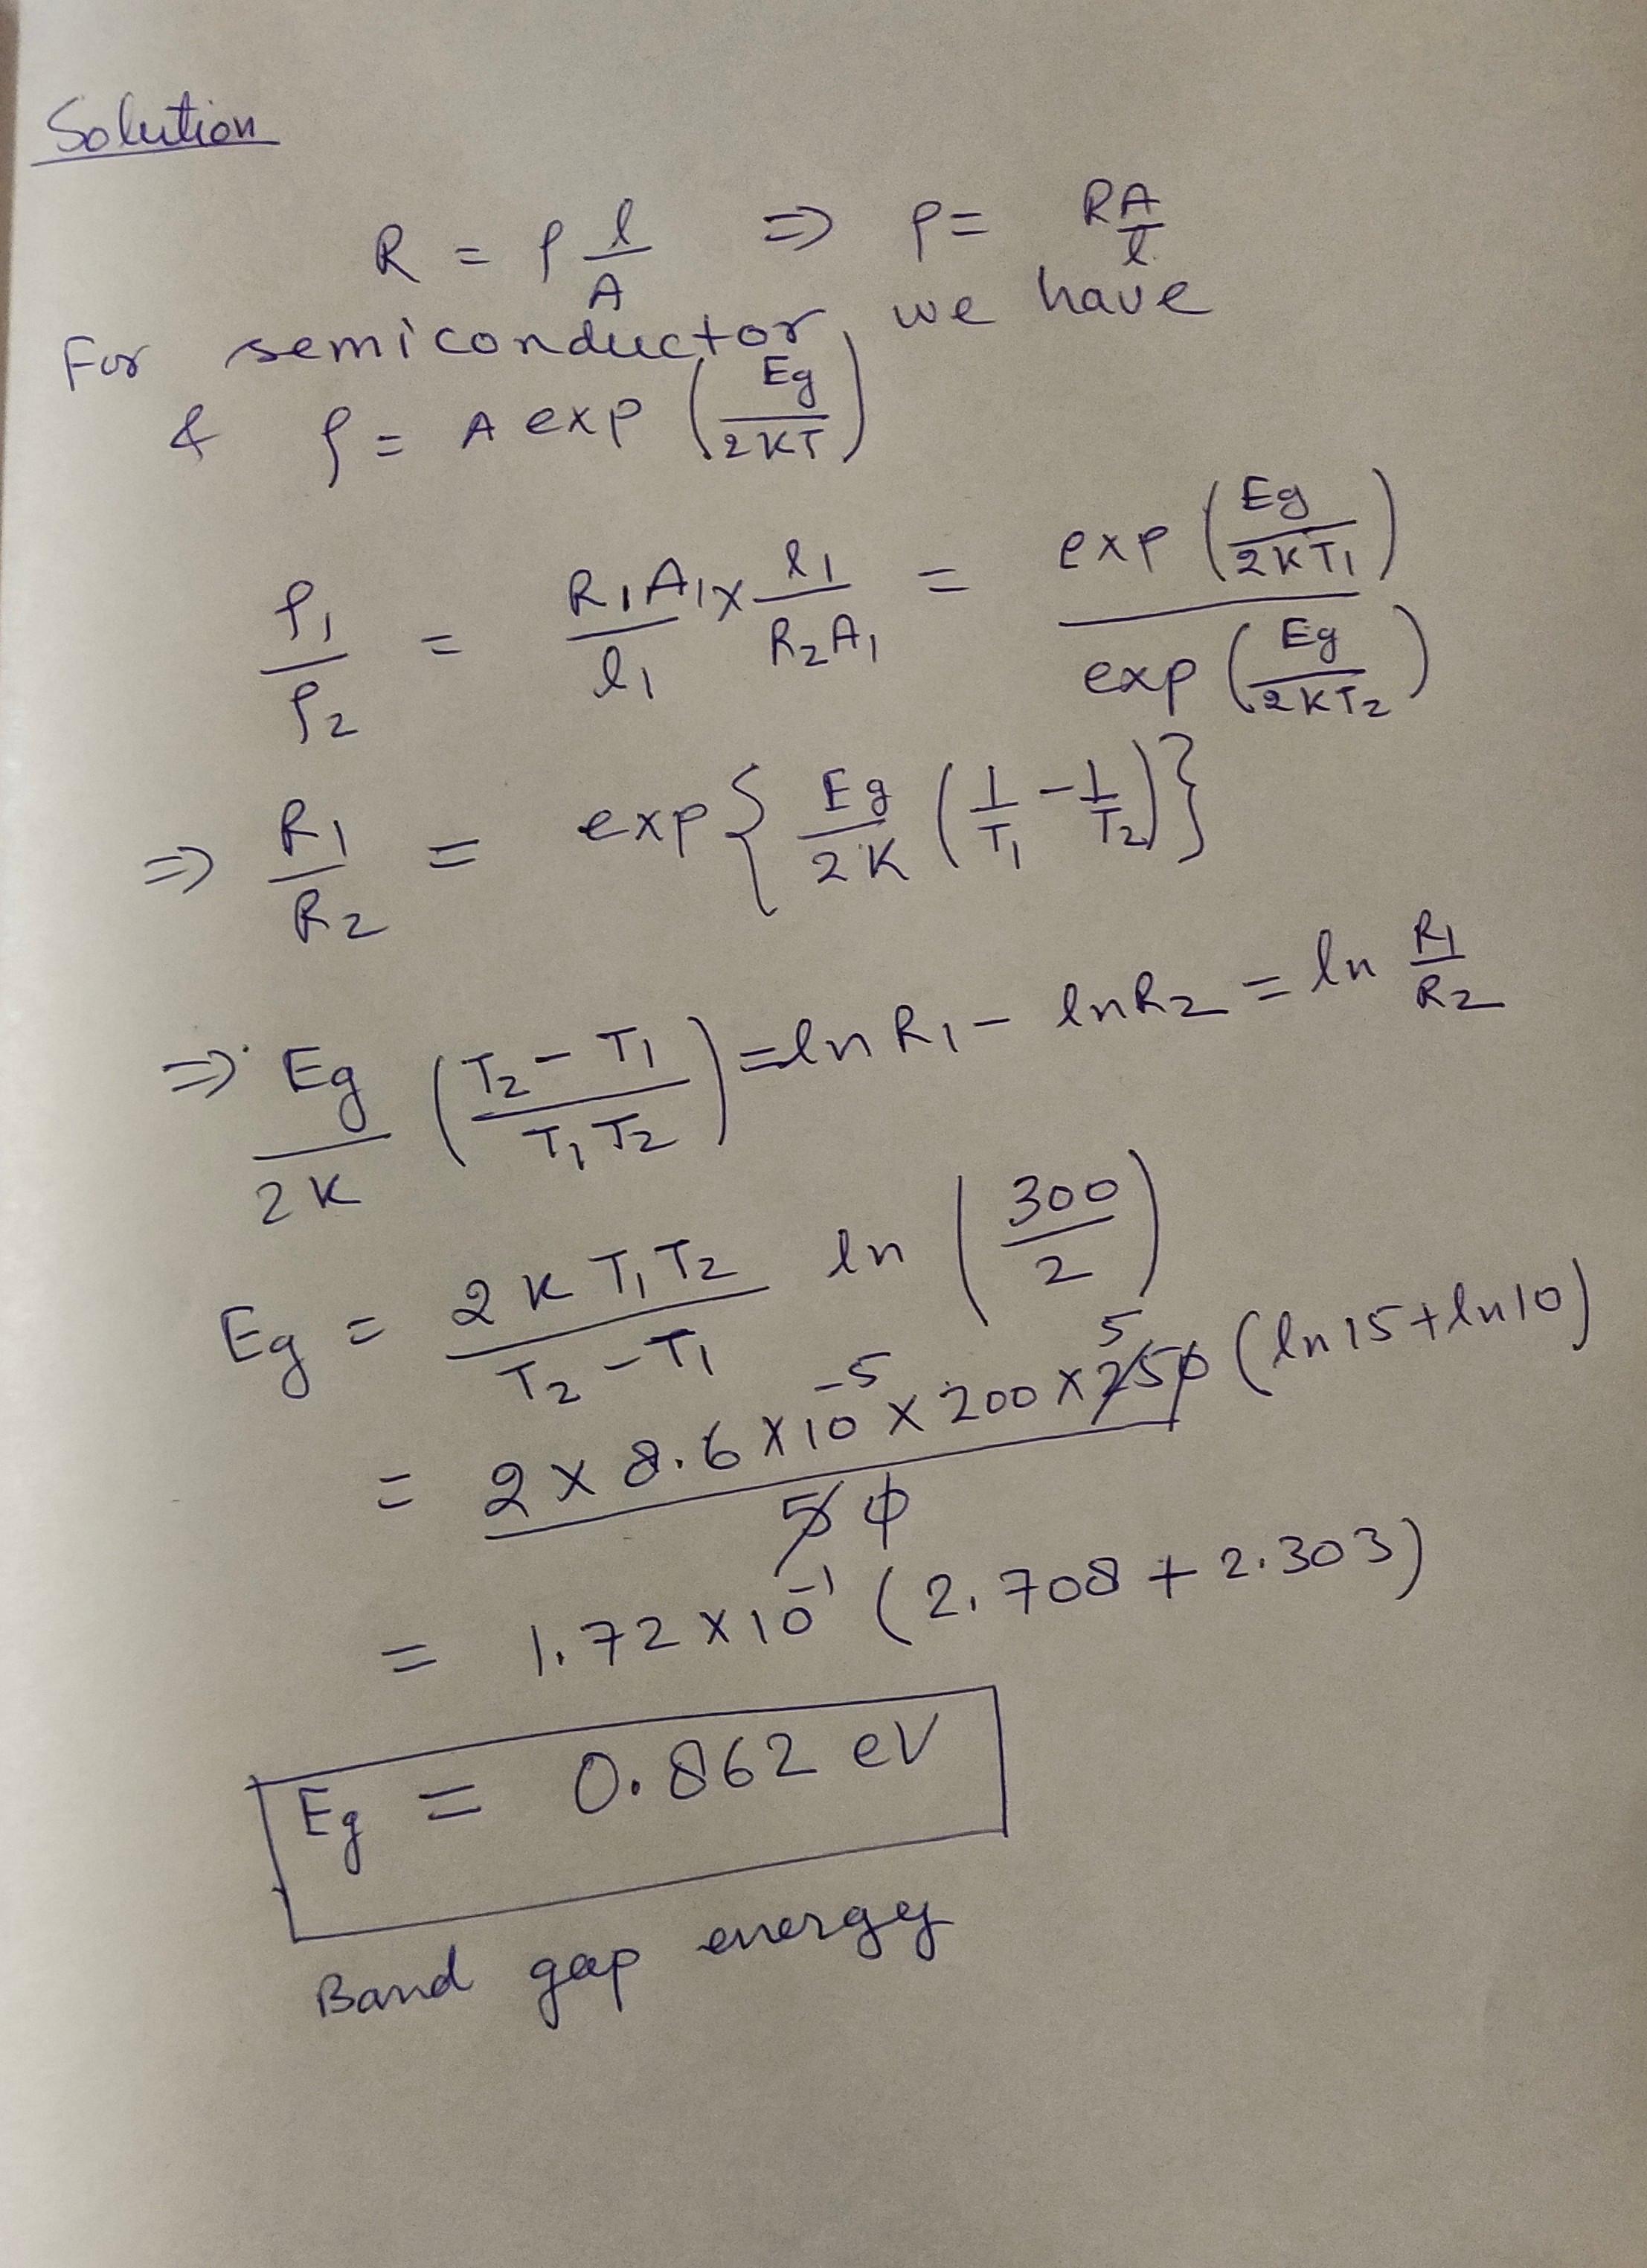 Solution
R = ρ l/A ⇒ ρ = RA/l
For semiconductor, we have
& ρ = A exp (Eg/2KT)
ρ1/ρ2 = R1A1/l1 × l1/R2A1 = exp (Eg/2KT1) / exp (Eg/2KT2)
⇒ R1/R2 = exp { Eg/2K (1/T1 - 1/T2) }
⇒ Eg/2K (T2 - T1 / T1T2) = ln R1 - ln R2 = ln R1/R2
Eg = 2K T1T2 / T2 - T1 ln (300/2)
= 2 × 8.6 × 10^-5 × 200 × 250 5 / 50 (ln 15 + ln 10)
= 1.72 × 10^-1 (2.708 + 2.303)
Eg = 0.862 eV
Band gap energy